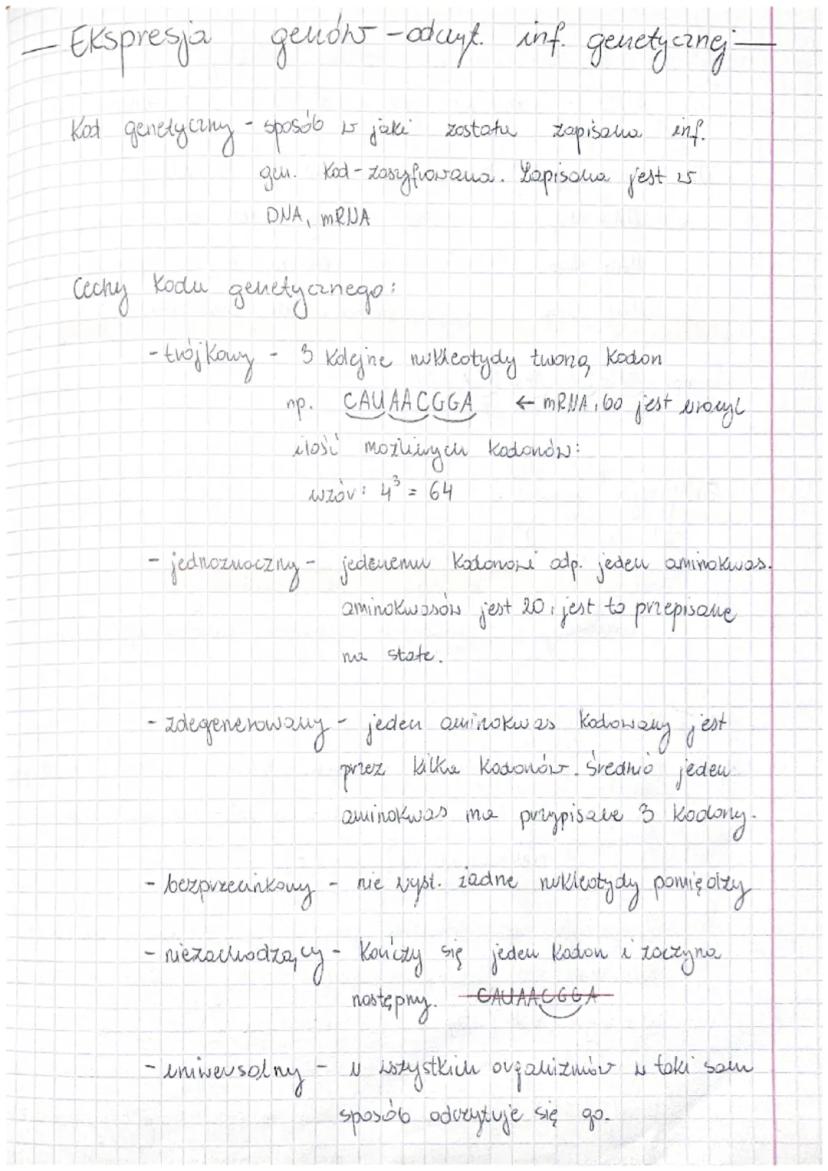 — Ekspresja genów - odczyt. inf. genetycznej —
Kod genetyczny - sposób w jaki została zapisana inf.
gen. Kod - zaszyfrowana. Zapisana jest w
DNA, mRNA
Cechy kodu genetycznego:
- trójkowy - 3 kolejne nukleotydy tworzą kodon
np. CAUAACGGA ← mRNA, bo jest uracyl
ilość możliwych kodonów:
wzór: 4³ = 64
- jednoznaczny - jednemu kodonowi odp. jeden aminokwas.
aminokwasów jest 20, jest to przepisane
na stałe.
- zdegenerowany - jeden aminokwas kodowany jest
przez kilka kodonów. Średnio jeden
aminokwas ma przypisane 3 kodony.
- bezprzecinkowy - nie wyst. żadne nukleotydy pomiędzy
- niezachodzący - kończy się jeden kodon i zaczyna
następny. CAUAACGGA
- uniwersalny - u wszystkich organizmów w taki sam
sposób odczytuje się go.